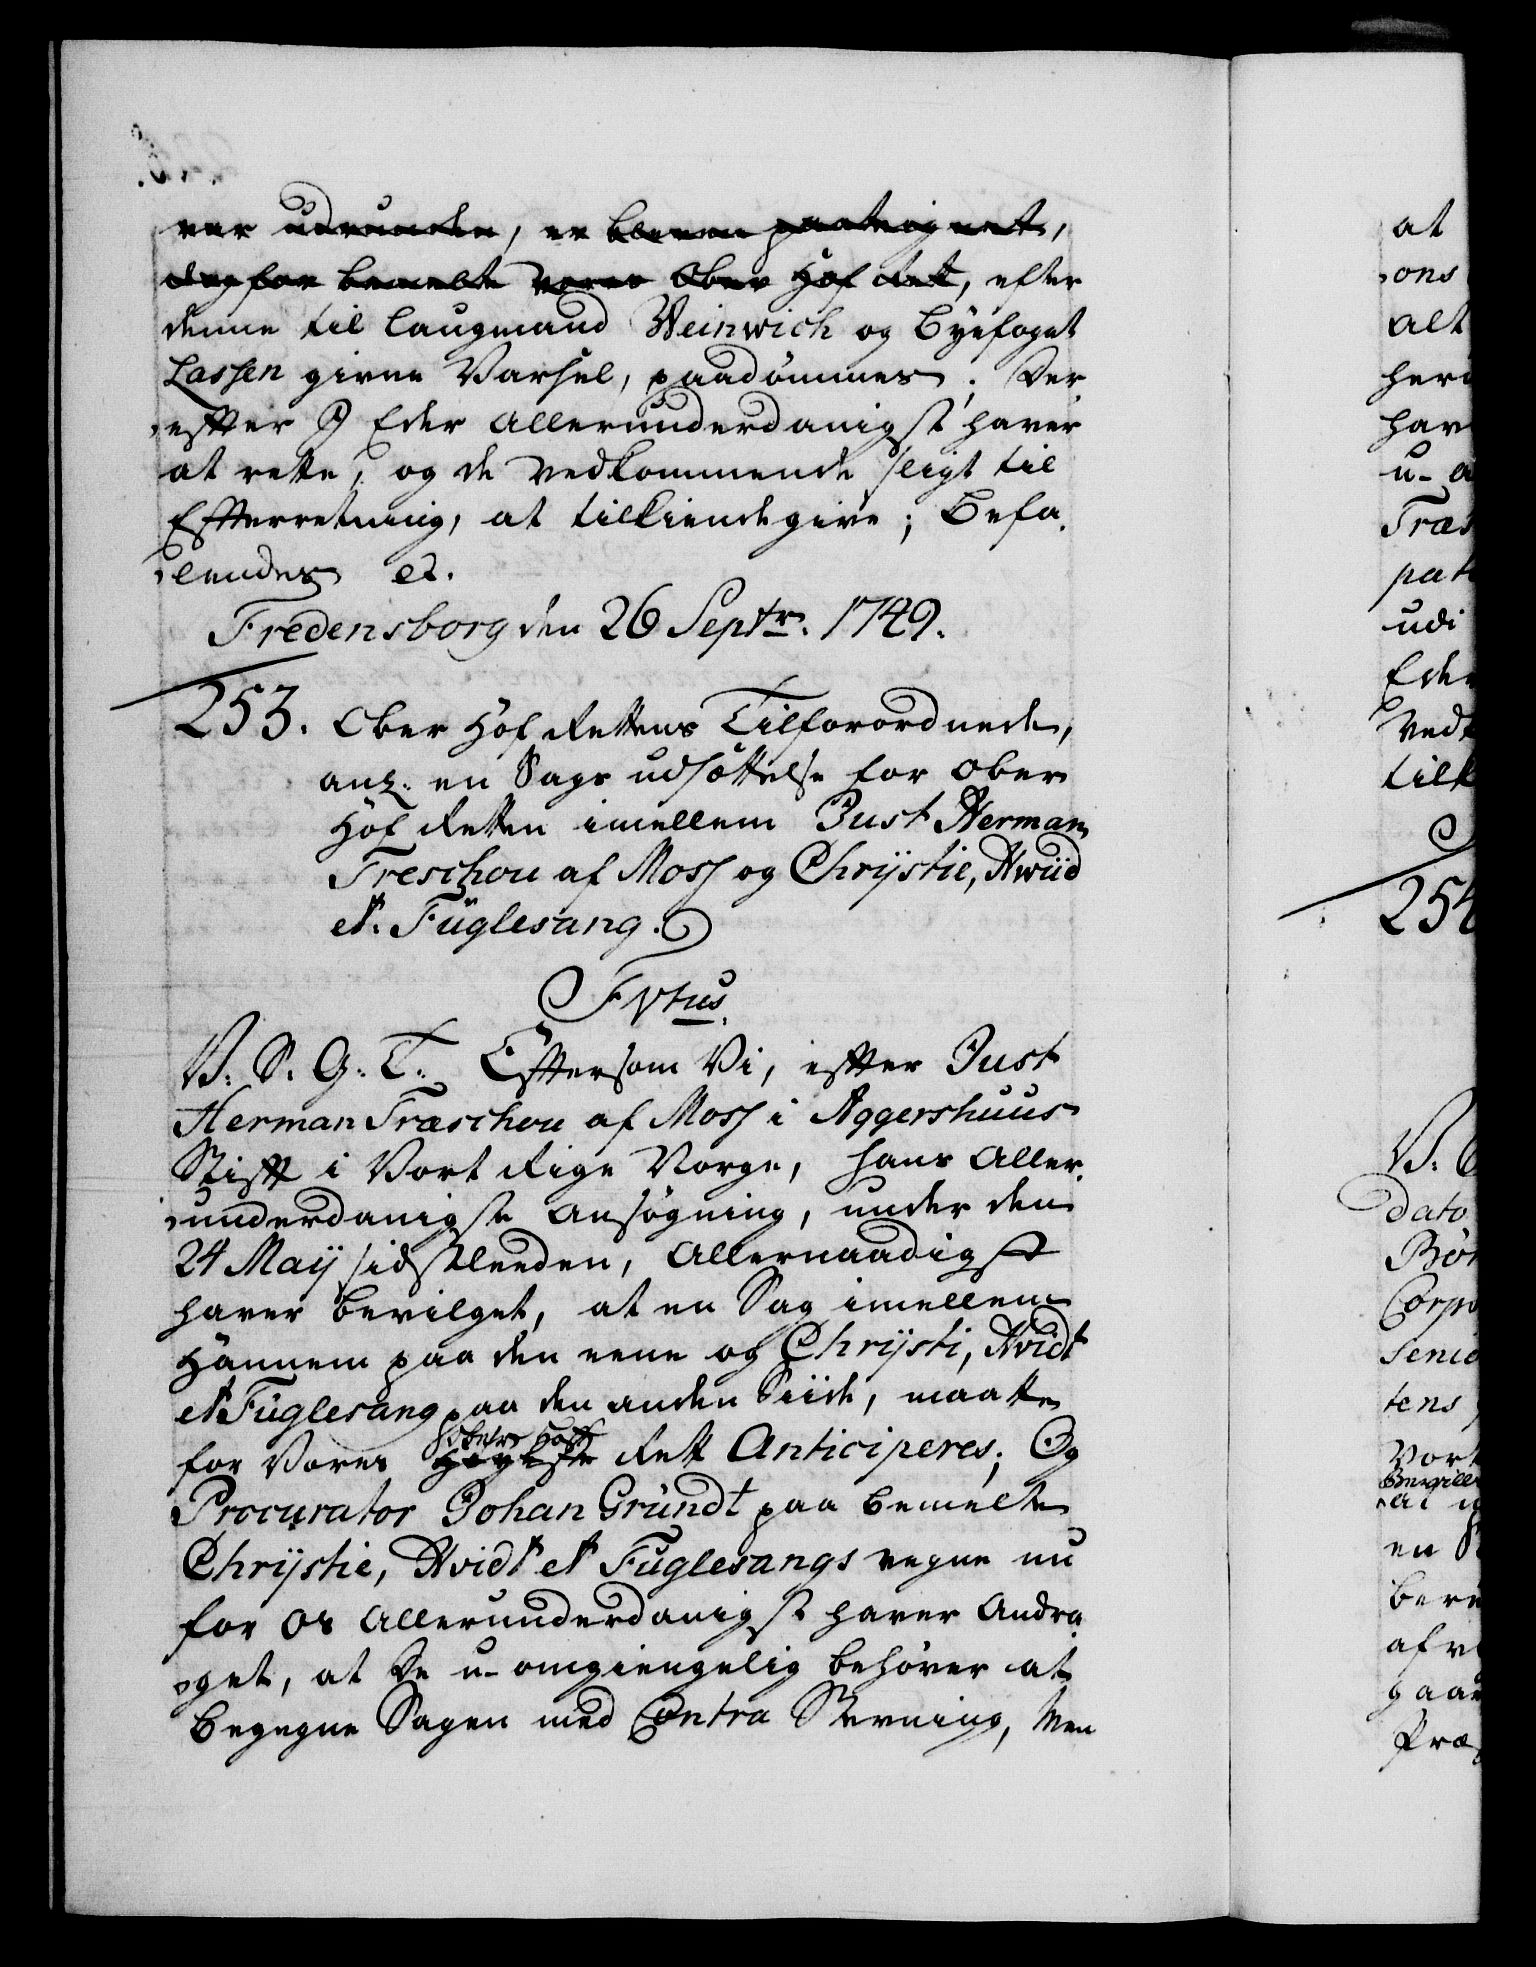 ver udrunden, er bleven paateignet,
dog for bemelte Vores Ober Hof Rett, efter
denne til Laugmand Weinwich og Byefoget
Lassen givne Varsel, paadømmes. Der
efter I Eder Allerunderdanigst haver
at rette, og de Vedkommende sligt til
Efterretning, at tilkiendegive; Befa
lendes etc.
Fredensborg den 26 Septr. 1749.
253. Ober Hof Rettens Tilforordnede,
ang. en Sags udsættelse for Ober
Hof Retten imellem Just Herman
Treschou af Moss og Chrijstie, Hwiid
et Fuglesang.
F Vtus.
V. S. G. T. Eftersom Vi, efter Just
Herman Træschou af Moss i Aggershuus
Stift i Vort Rige Norge, hans Aller
underdanigste Ansøgning, under den
24 Maij sidstleeden, Allernaadigst
haver bevilget, at en Sag imellem
Hannem paa den eene og Chrijsti, Hvidt
et Fuglesang paa den anden Siide, maatte
for Vores Høyeste Obers Hoff Rett Anticiperes; Og
Procurator Johan Gründt paa bemelte
Chrijstie, Hvidt et Fuglesangs vegne nu
for Os Allerunderdanigst haver Andra
get, at De u-omgiengelig behøver at
begegne Sagen med Contra Stevning, Men
at
ons
alt
har
u-
Træs
udi
Eder
Ved
tilk
254
V.
dato
Corp
Senio
tens
Vort
en
af
gaae